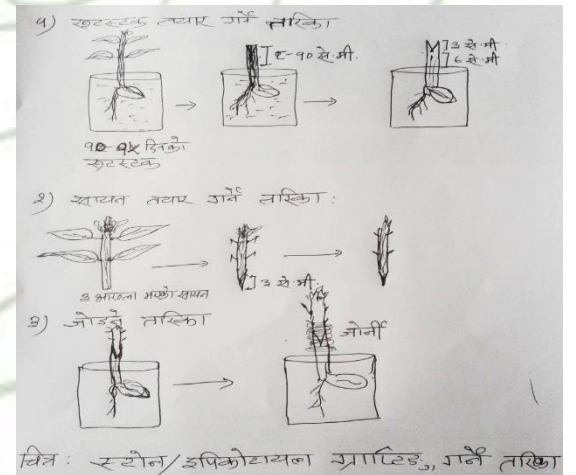 १) रुटस्टक तयार गर्ने तरिका
८-१० से.मी.
३ से.मी
६ से.मी
१०-१५ दिनको
रुटस्टक
२) सायन तयार गर्ने तरिका:
३ से.मी.
३ आख्ला भएको सायन
३) जोड्ने तरिका
जोर्नी
चित्र: स्टोन/इपिकोटायल ग्राफ्टिङ्ग, गर्ने तरिका